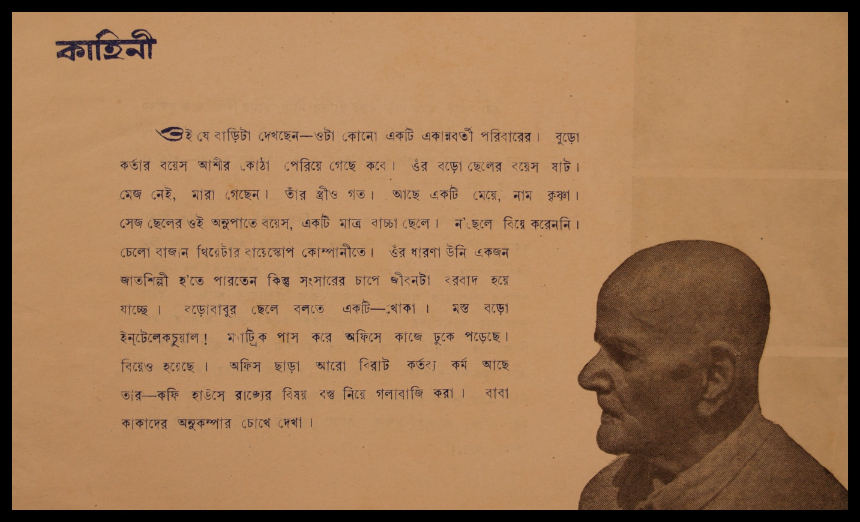 কাহিনী
ওই যে বাড়িটা দেখছেন—ওটা কোনো একটি একান্নবর্তী পরিবারের। বুড়ো
কর্তার বয়েস আশীর কোঠা পেরিয়ে গেছে কবে। ওঁর বড়ো ছেলের বয়েস ষাট।
মেজ নেই, মারা গেছেন। তাঁর স্ত্রীও গত। আছে একটি মেয়ে, নাম কৃষ্ণা।
সেজ ছেলের ওই অনুপাতে বয়েস, একটি মাত্র বাচ্চা ছেলে। ন'ছেলে বিয়ে করেননি।
চেলো বাজান থিয়েটার বায়োস্কোপ কোম্পানীতে। ওঁর ধারণা উনি একজন
জাতশিল্পী হ'তে পারতেন কিন্তু সংসারের চাপে জীবনটা বরবাদ হয়ে
যাচ্ছে। বড়োবাবুর ছেলে বলতে একটি—খোকা। মস্ত বড়ো
ইন্‌টেলেকচুয়াল! ম্যাট্রিক পাস করে অফিসে কাজে ঢুকে পড়েছে।
বিয়েও হয়েছে। অফিস ছাড়া আরো বিরাট কর্তব্য কর্ম আছে
তার—কফি হাউসে রাজ্যের বিষয় বস্তু নিয়ে গলাবাজি করা। বাবা
কাকাদের অনুকম্পার চোখে দেখা।